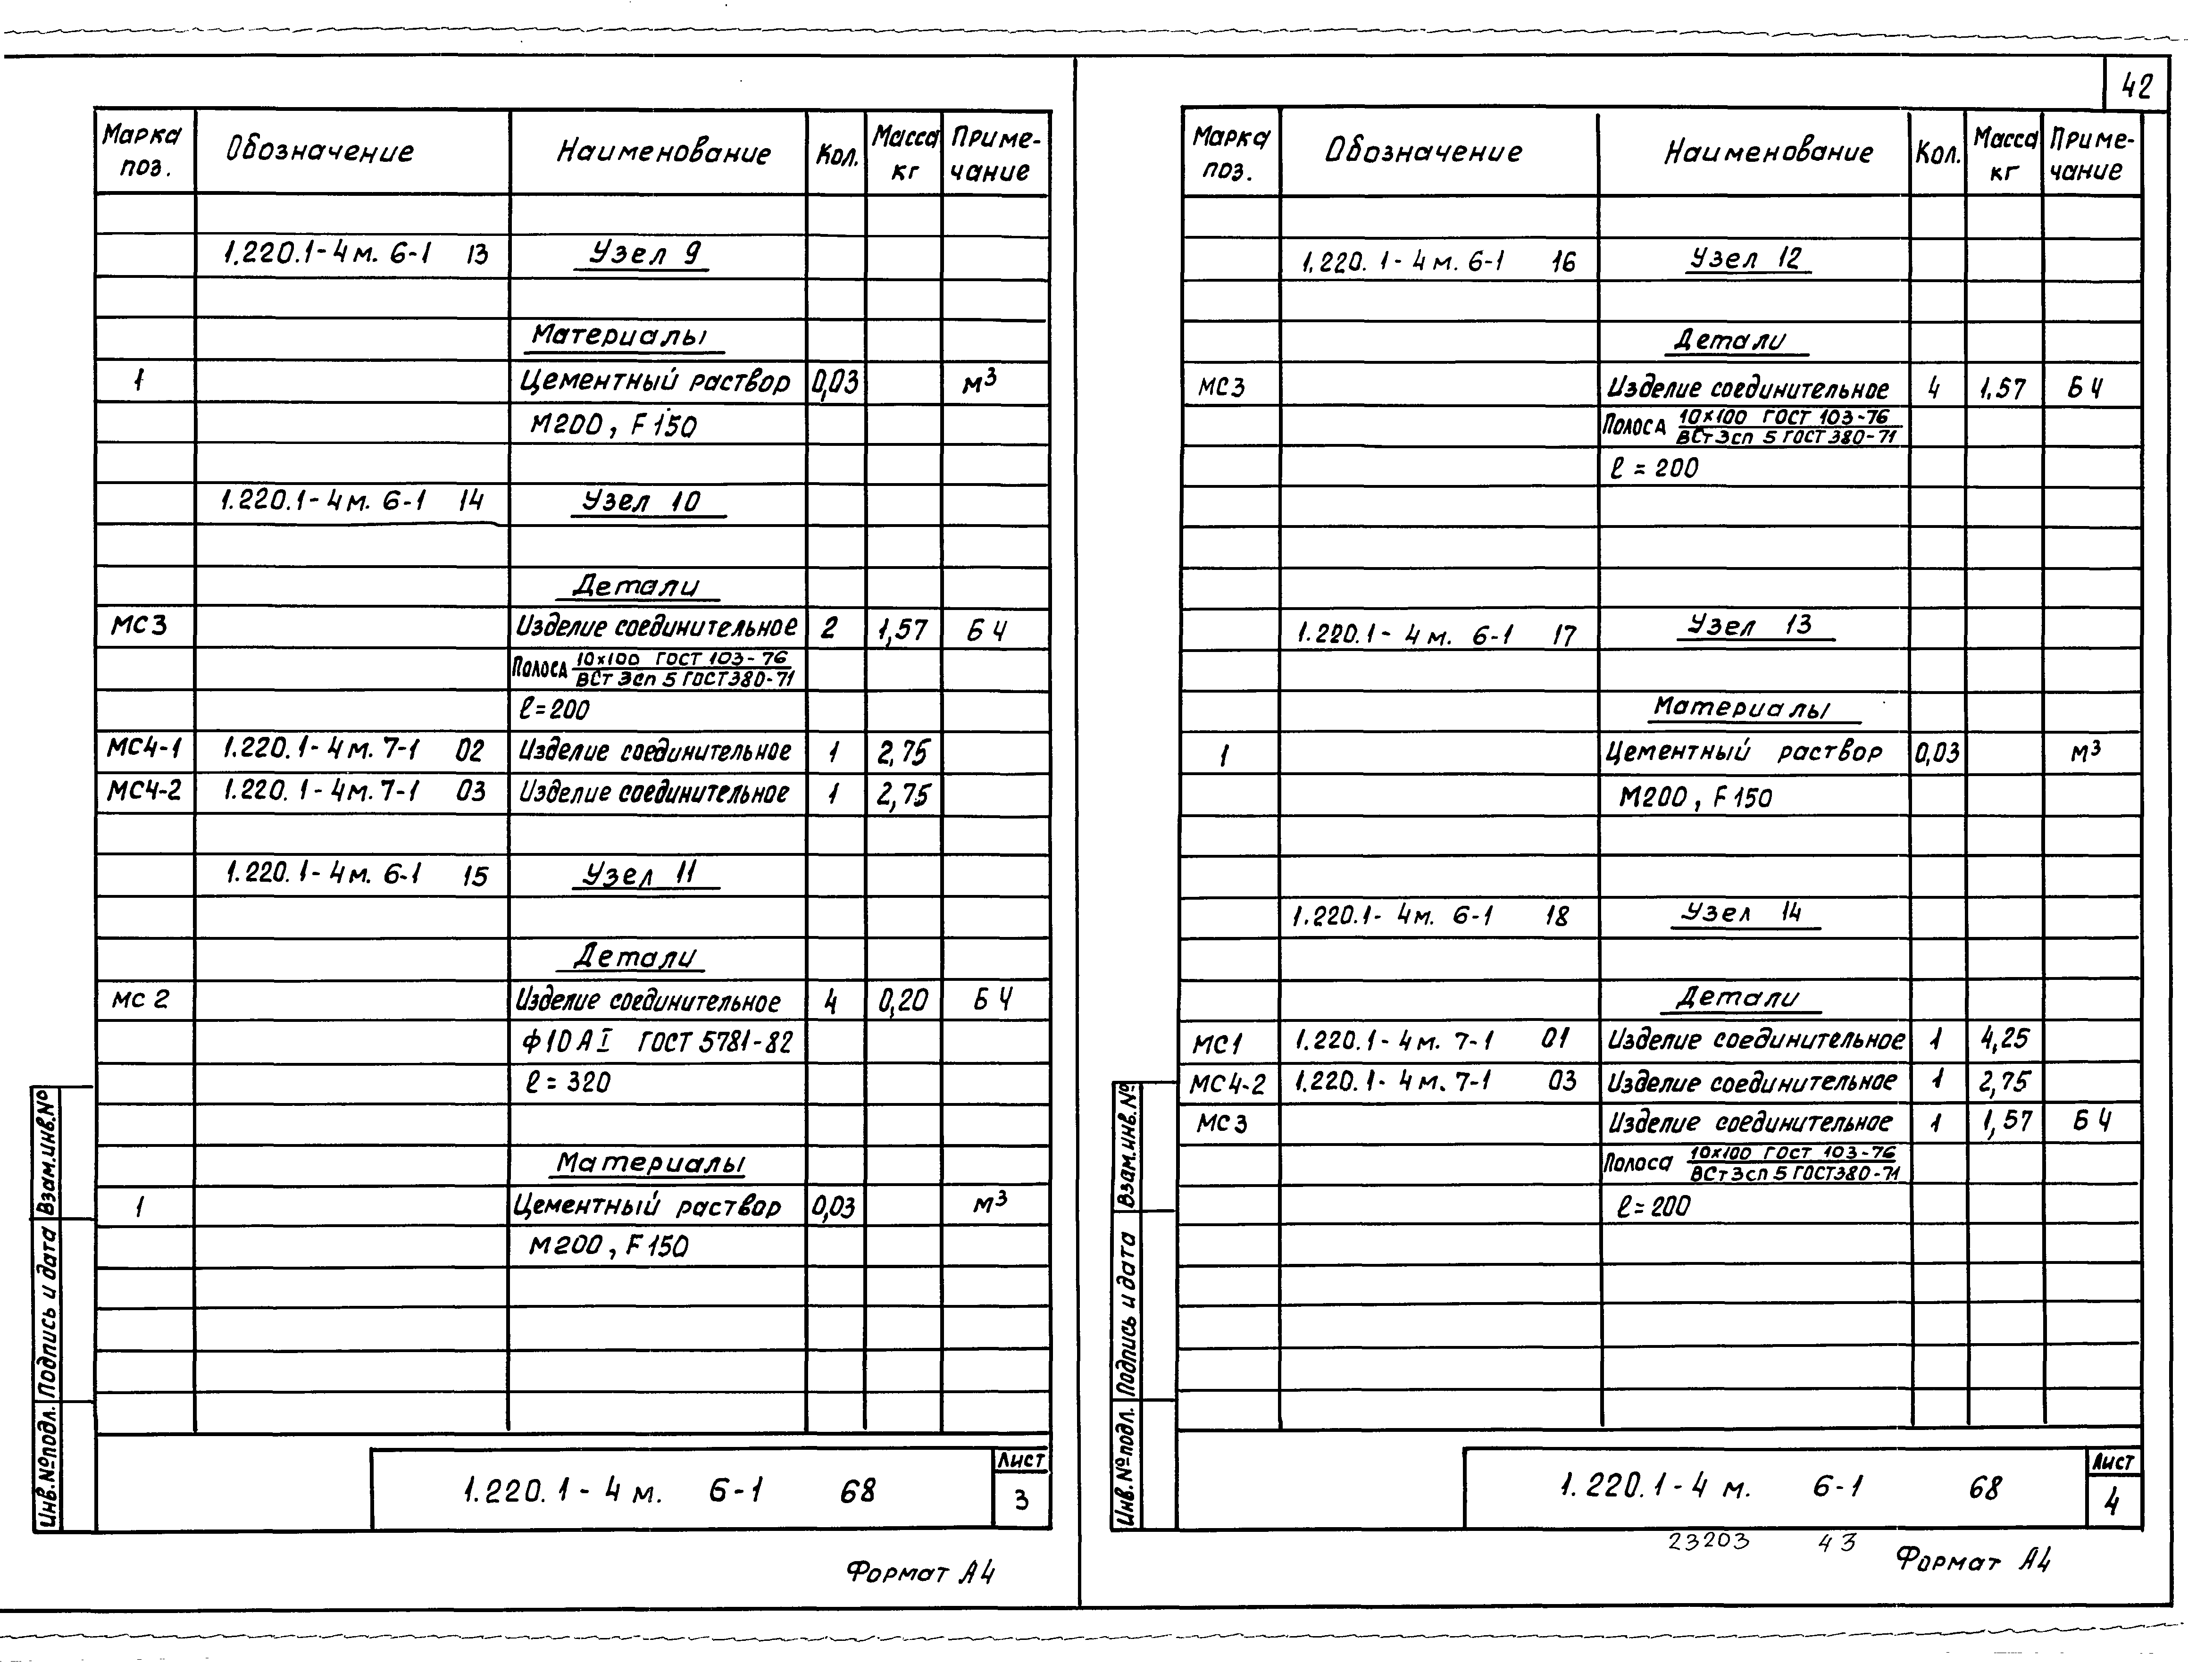 42
Марка поз. Обозначение Наименование Кол. Масса кг Примечание
1.220.1-4м. 6-1 13 Узел 9
Материалы
1 Цементный раствор 0,03 м³
М200, F150
1.220.1-4м. 6-1 14 Узел 10
Детали
МС3 Изделие соединительное 2 1,57 БЧ
Полоса 10×100 ГОСТ 103-76 / ВСт3сп5 ГОСТ380-71
ℓ=200
МС4-1 1.220.1-4м. 7-1 02 Изделие соединительное 1 2,75
МС4-2 1.220.1-4м. 7-1 03 Изделие соединительное 1 2,75
1.220.1-4м. 6-1 15 Узел 11
Детали
МС2 Изделие соединительное 4 0,20 БЧ
Ф10АI ГОСТ 5781-82
ℓ=320
Материалы
1 Цементный раствор 0,03 м³
М200, F150
Инв.№подл. Подпись и дата Взам.инв.№
1.220.1-4м. 6-1 68
Лист
3
Формат А4
Марка поз. Обозначение Наименование Кол. Масса кг Примечание
1.220.1-4м. 6-1 16 Узел 12
Детали
МС3 Изделие соединительное 4 1,57 БЧ
Полоса 10×100 ГОСТ 103-76 / ВСт3сп5 ГОСТ380-71
ℓ=200
1.220.1-4м. 6-1 17 Узел 13
Материалы
1 Цементный раствор 0,03 м³
М200, F150
1.220.1-4м. 6-1 18 Узел 14
Детали
МС1 1.220.1-4м. 7-1 01 Изделие соединительное 1 4,25
МС4-2 1.220.1-4м. 7-1 03 Изделие соединительное 1 2,75
МС3 Изделие соединительное 1 1,57 БЧ
Полоса 10×100 ГОСТ 103-76 / ВСт3сп5 ГОСТ380-71
ℓ=200
Инв.№подл. Подпись и дата Взам.инв.№
1.220.1-4м. 6-1 68
Лист
4
23203 43
Формат А4